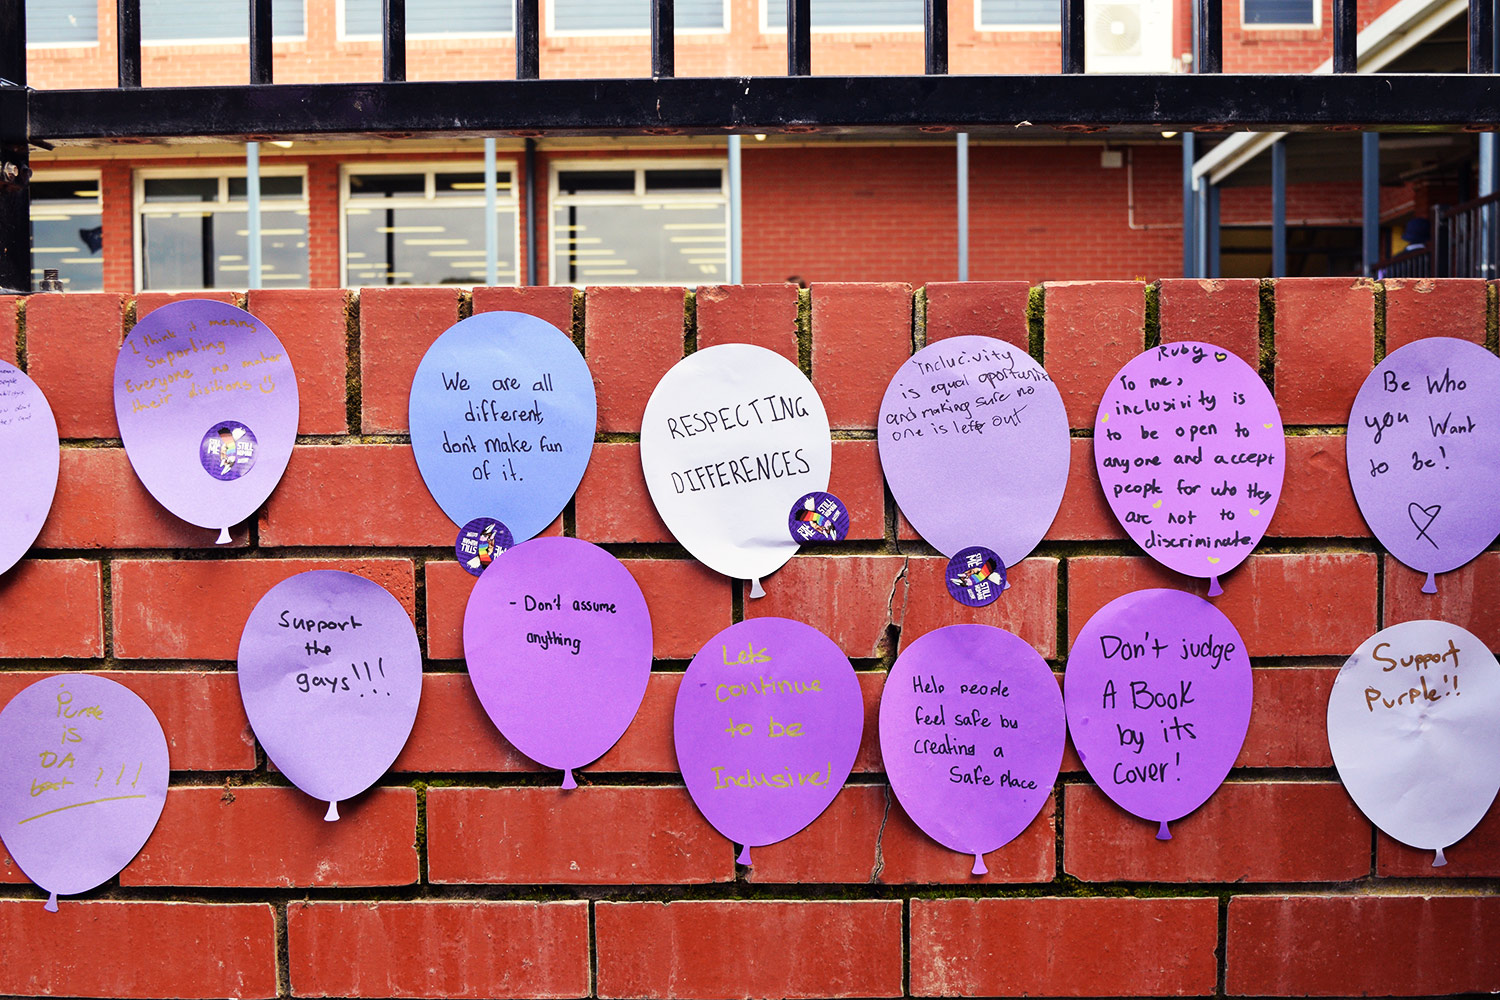 I think it means
Suporting
Everyone no matter
their disitions
We are all
different,
don't make fun
of it.
RESPECTING
DIFFERENCES
inclucivity
is equal oportunity
and making sure no
one is left out
Ruby
To me,
inclusivity is
to be open to
anyone and accept
people for who they
are not to
discriminate.
Be Who
you Want
to be!
Purple
is
DA
best !!!
Support
the
gays!!!
- Don't assume
anything
Lets
continue
to be
Inclusive!
Help people
feel safe by
creating a
Safe place
Don't judge
A Book
by its
cover!
Support
Purple!!
STILL
ME
STILL
HUMAN